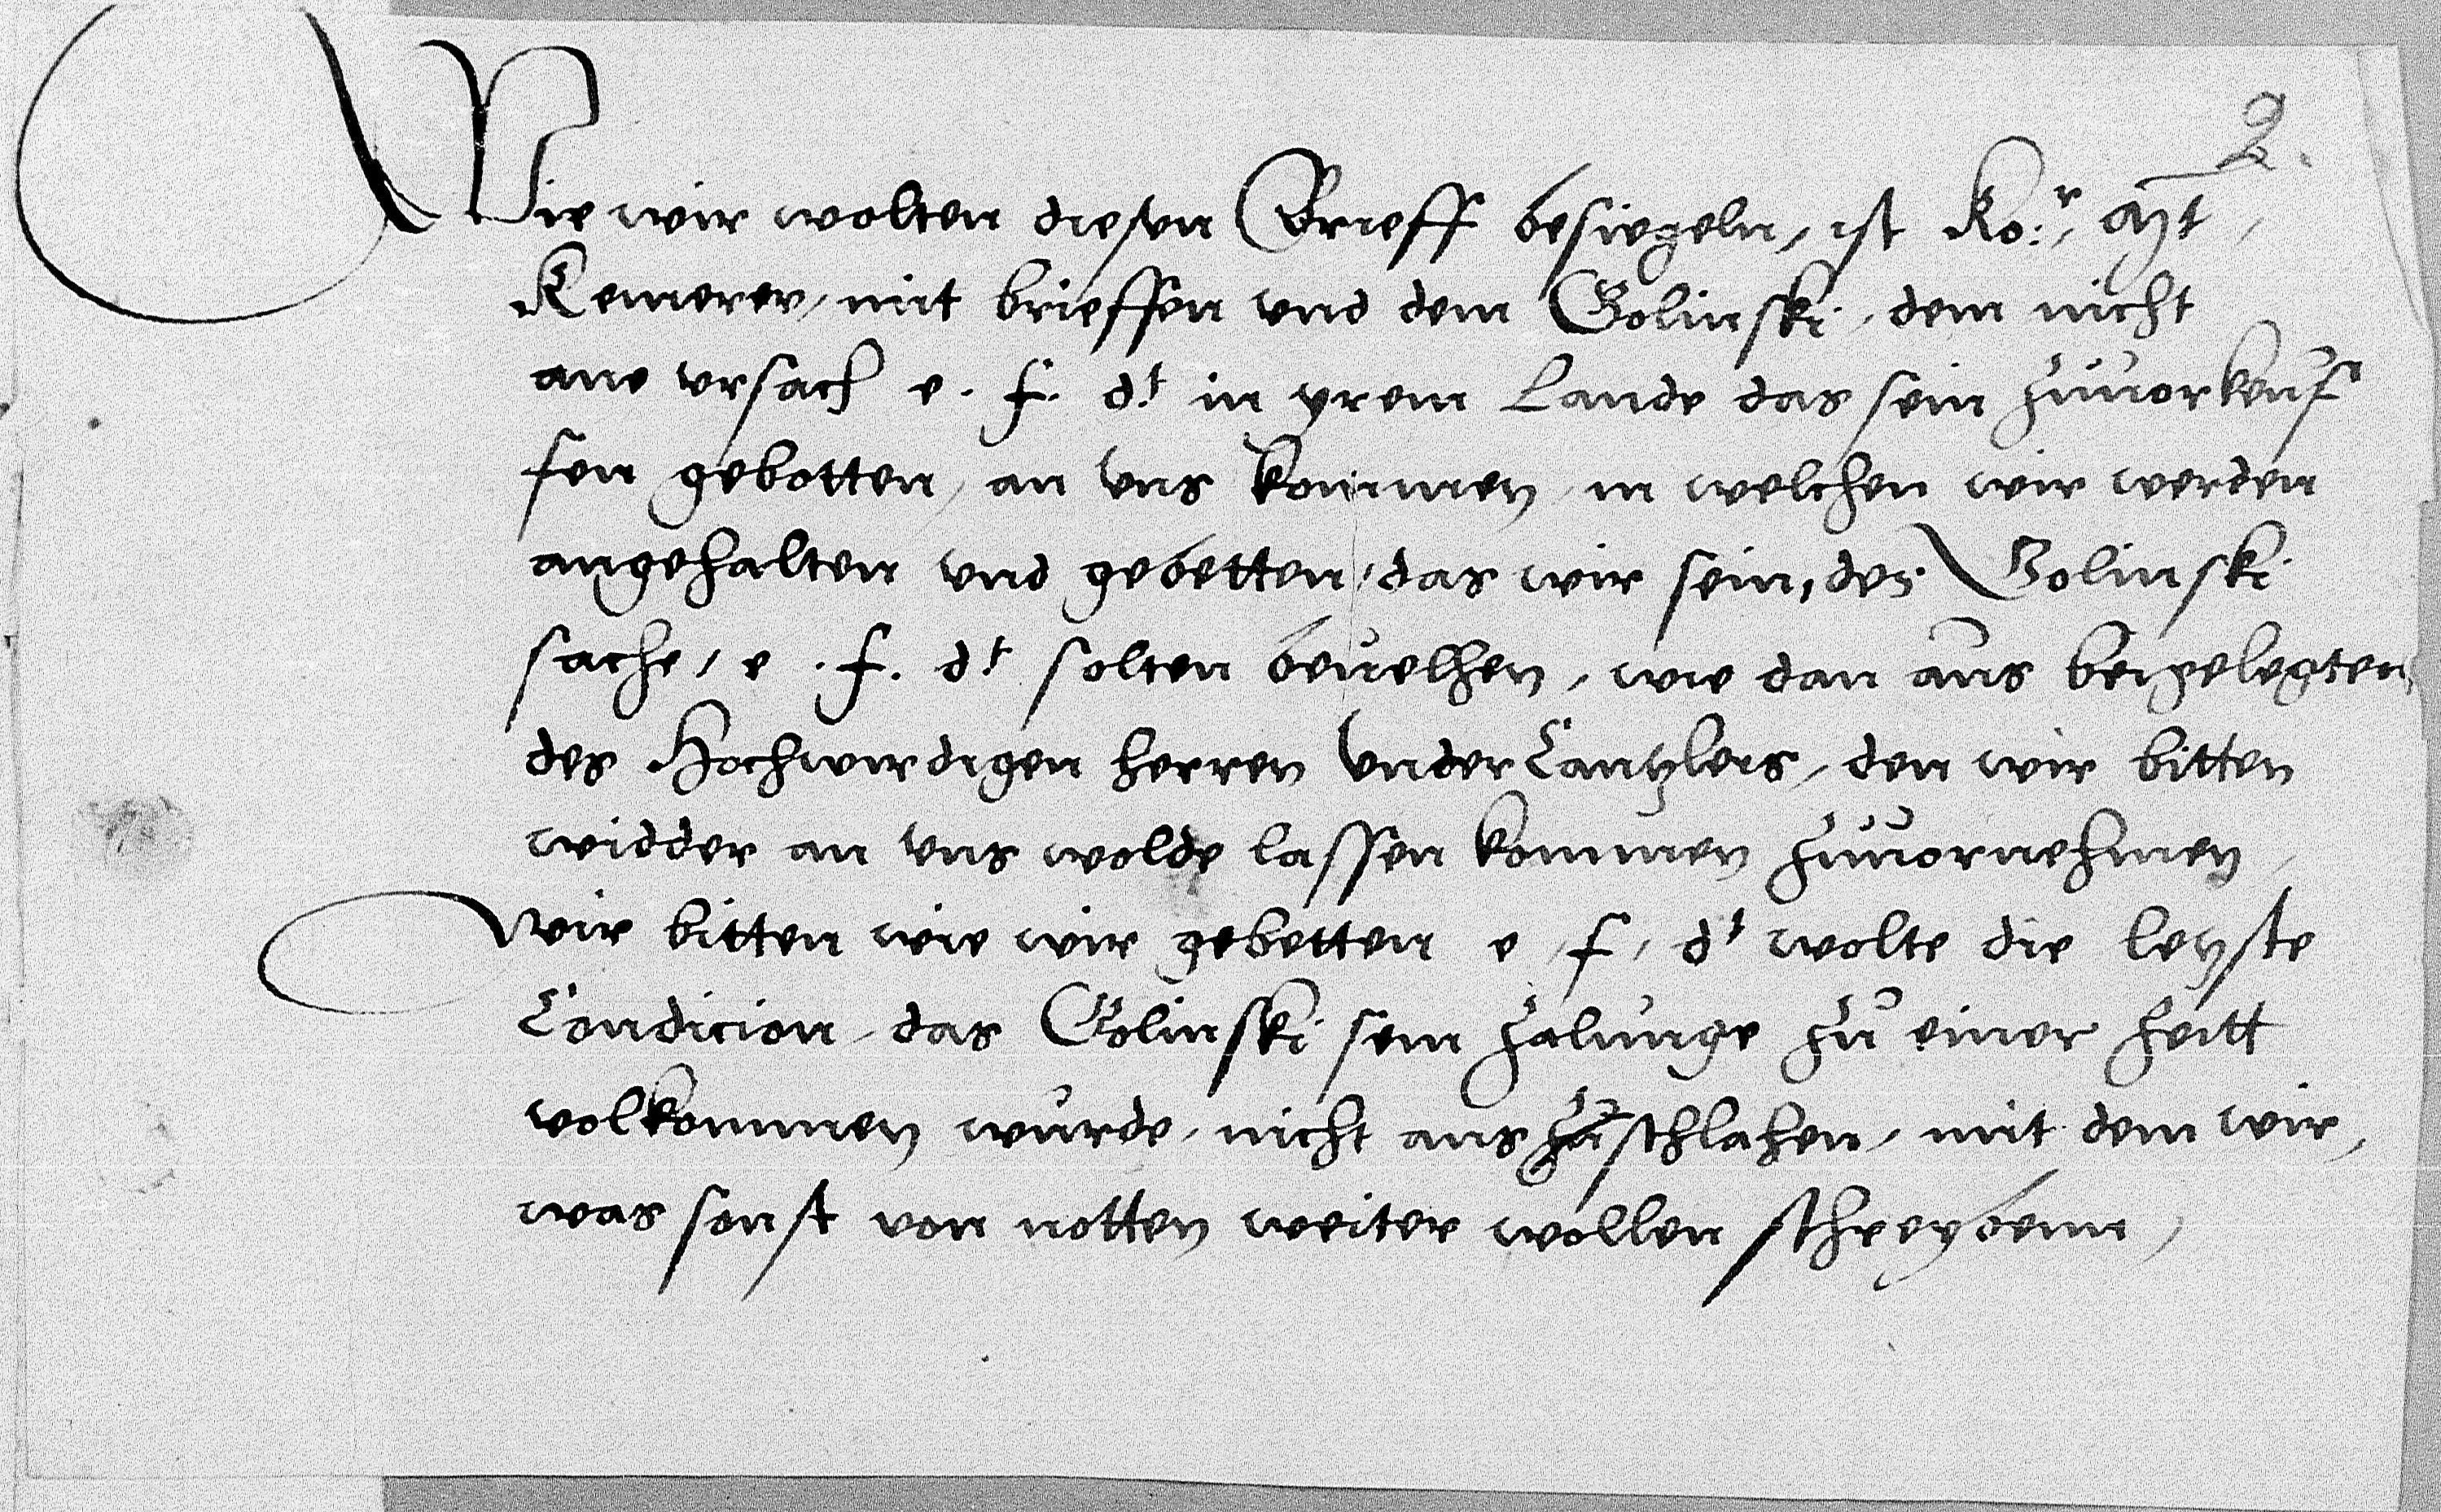 2.
Wie wir wolten diesen Brieff besiegeln, ist Ko:r Mt,
Kemerer, mit brieffen vnd dem Golinski, dem nicht
ane vrsach e. f. dt in yrem Lande das sein zuuorkeuf
fen gebotten, an vns kommen, in welchen wir werden
angehalten vnd gebetten, das wir sein, des Golinski
sache, e. f. dt solten beuelhen, wie dan aus beygelegten
des Hochwirdigen herren VnderCantzlers, den wir bitten
widder an vns wolde lassen kommen zuuornehmen,
Wir bitten wie wir gebetten e, f, dt wolte die letzste
Condicion, das Golinski sein zalunge zu einer zeitt
volkommen wurde, nicht auszuschlahen, mit dem wir,
was sonst von notten weiter wollen schreybenn,